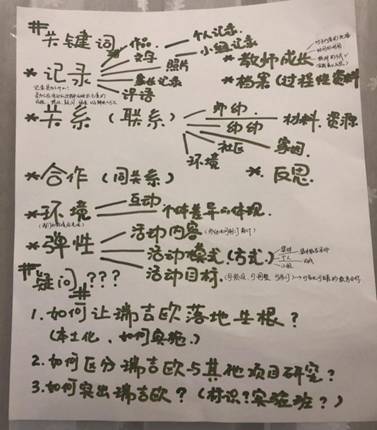 #关键词
作品
文字
个人记录
小组记录
照片
*记录
*教师成长
家长记录
评语
*档案(过程性资料
*关系(联系)
师幼
幼幼
材料.资源
社区
家园
环境
*反思.
*合作(同关系)
*环境
互动
个体差异的体现.
*弹性
活动内容
活动模式(方式)
活动目标.
#疑问???
#
1.如何让瑞吉欧落地生根?
(本土化、如何实施.)
2.如何区分瑞吉欧与其他项目研究?
3.如何突出瑞吉欧?(标识?实验班?)